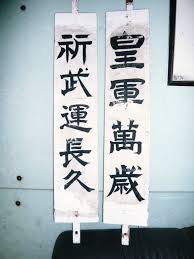 皇軍萬歳
祈武運長久